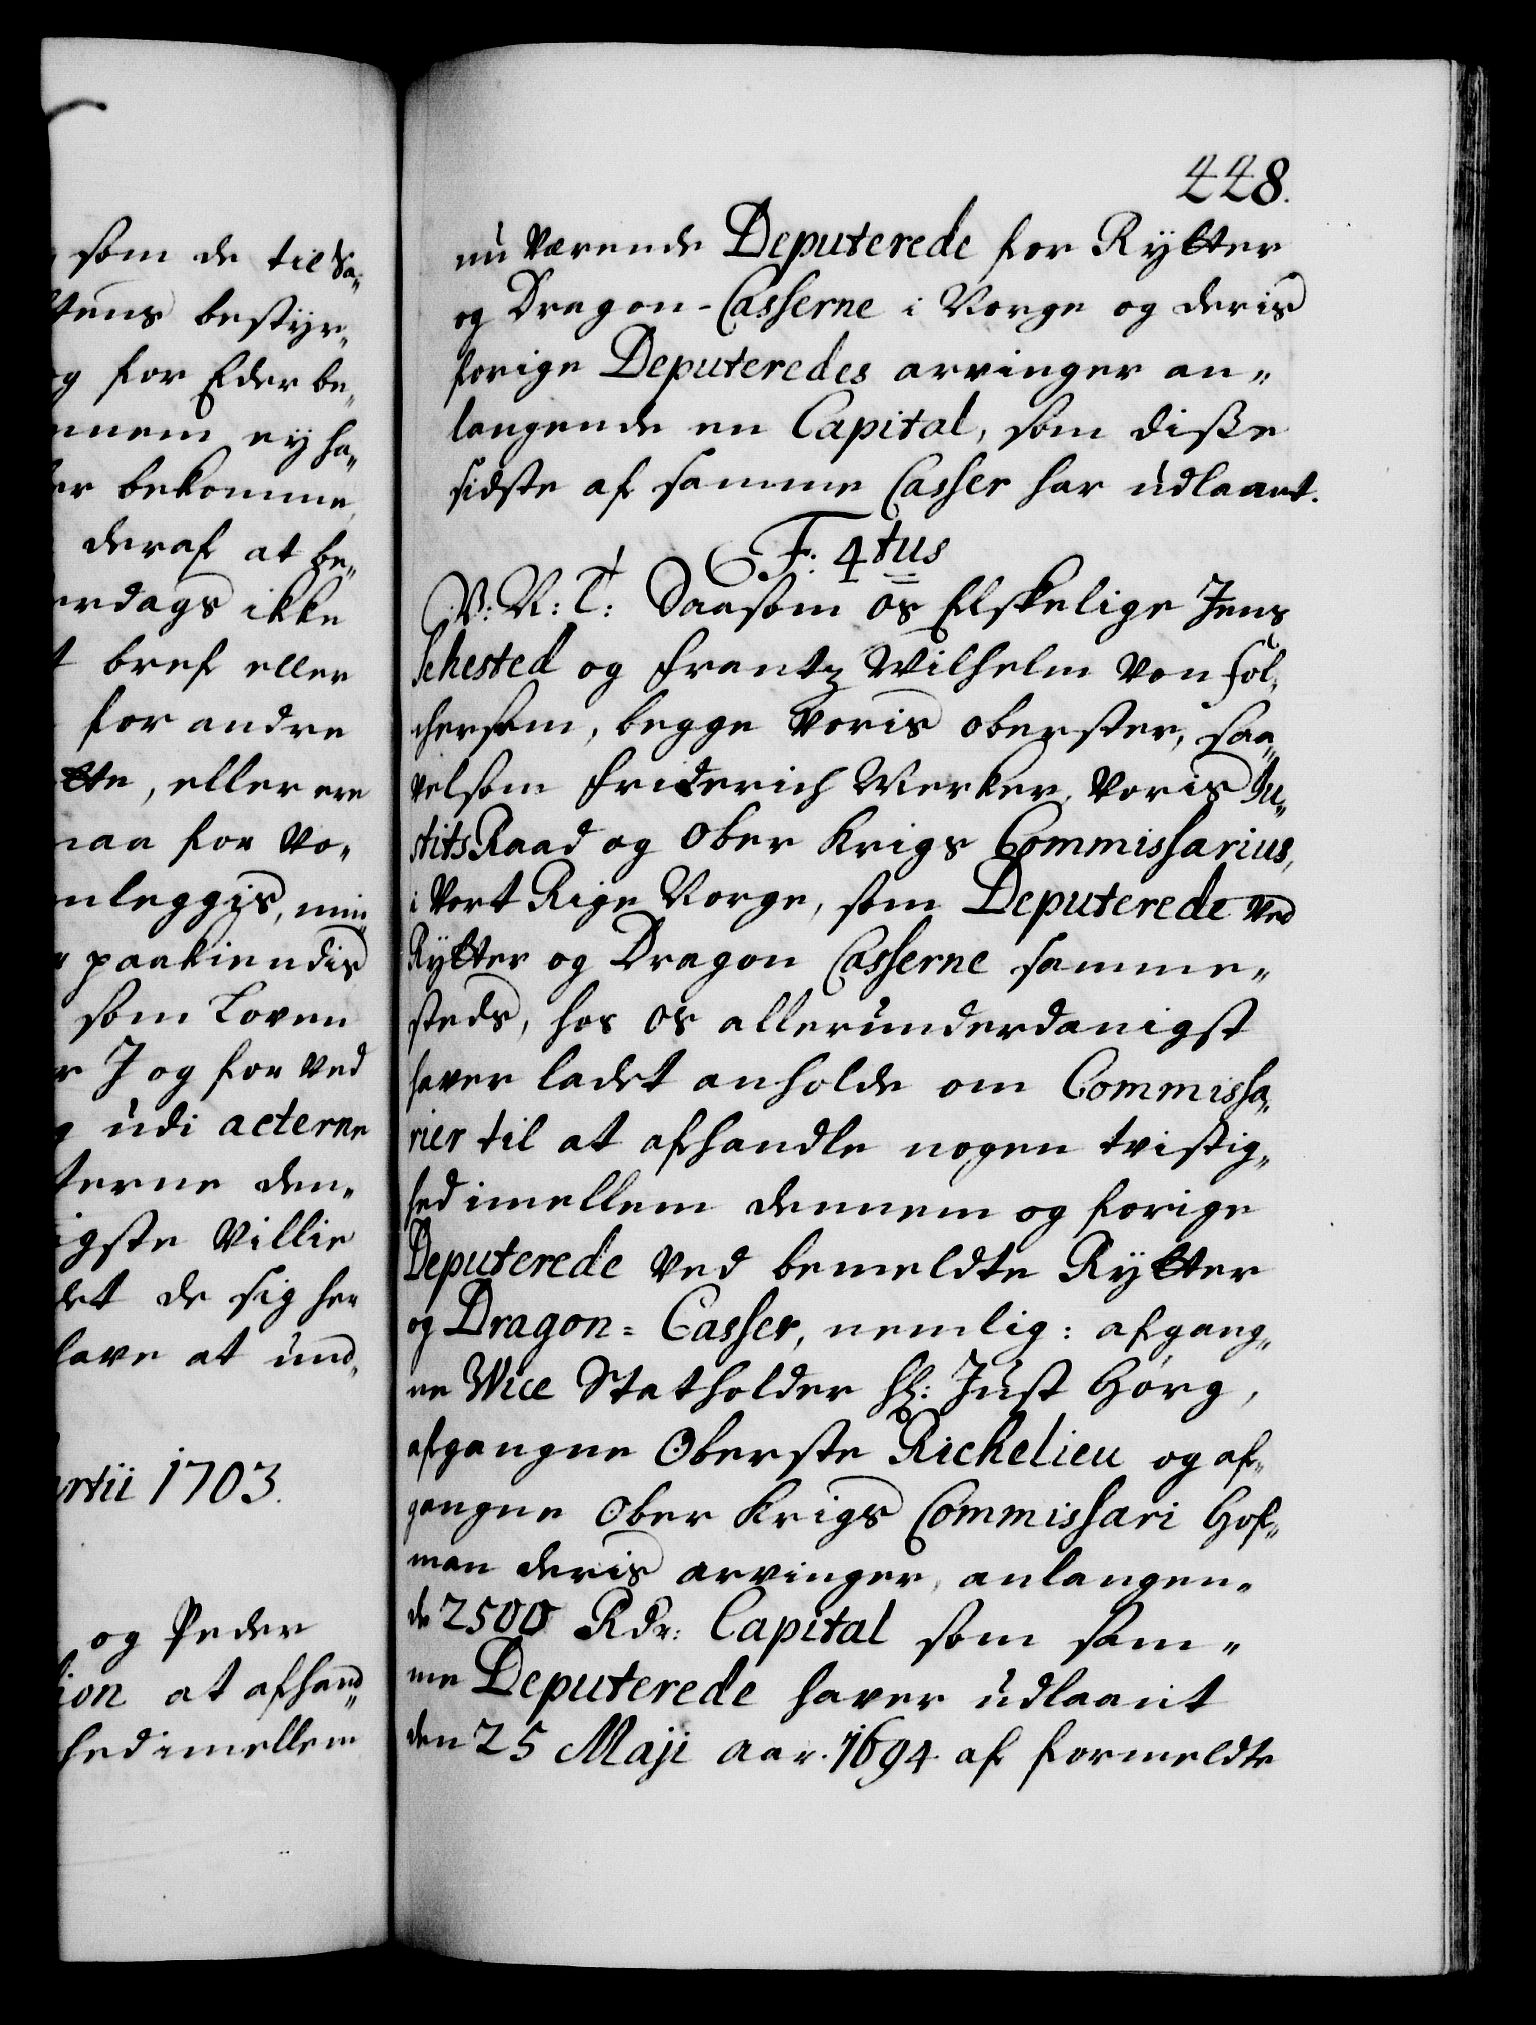 som de til Sa„
tens bestyr„
g for Eder be„
nnem ey ha„
er bekomme,
deraf at be„
erdags ikke
t bref eller
for andre
tte, eller ere
naa for Vo„
nleggis, min„
r paakiendis
som Loven
r I og for Ved
g udi acterne
terne den„
igste Villie
det de sig her
lave at und„
rtii 1703.
og Peder
ion at afhand„
hed imellem
448.
nu Værende Deputerede for Rytter
og Dragon-Casserne i Norge og deris
forige Deputeredes arvinger an„
langende en Capital, som diße
sidste af samme Casser har udlaant.
F: 4tus
V: N: T: Saasom os Elskelige Jens
Sehested og Frantz Wilhelm von Föl„
chersam, begge Voris Oberster, saa„
velsom Friderich Werker, Voris Ju„
stits Raad og Ober Krigs Commissarius,
i Vort Rige Norge, som Deputerede Ved
Rytter og Dragon Casserne samme„
steds, hos os allerunderdanigst
haver ladet anholde om Commissa„
rier til at afhandle nogen tvistig„
hed imellem dennem og forige
Deputerede Ved bemeldte Rytter
og Dragon= Casser, nemlig: afgang„
ne Vice Statholder Hr: Just Hørg,
afgangne Oberste Richelieu og af„
gangne Ober Krigs Commissari Hof„
man deris arvinger, anlangen„
de 2500 Rdr: Capital som sam„
me Deputerede haver udlaant
den 25 Maji Aar. 1694 af formeldte